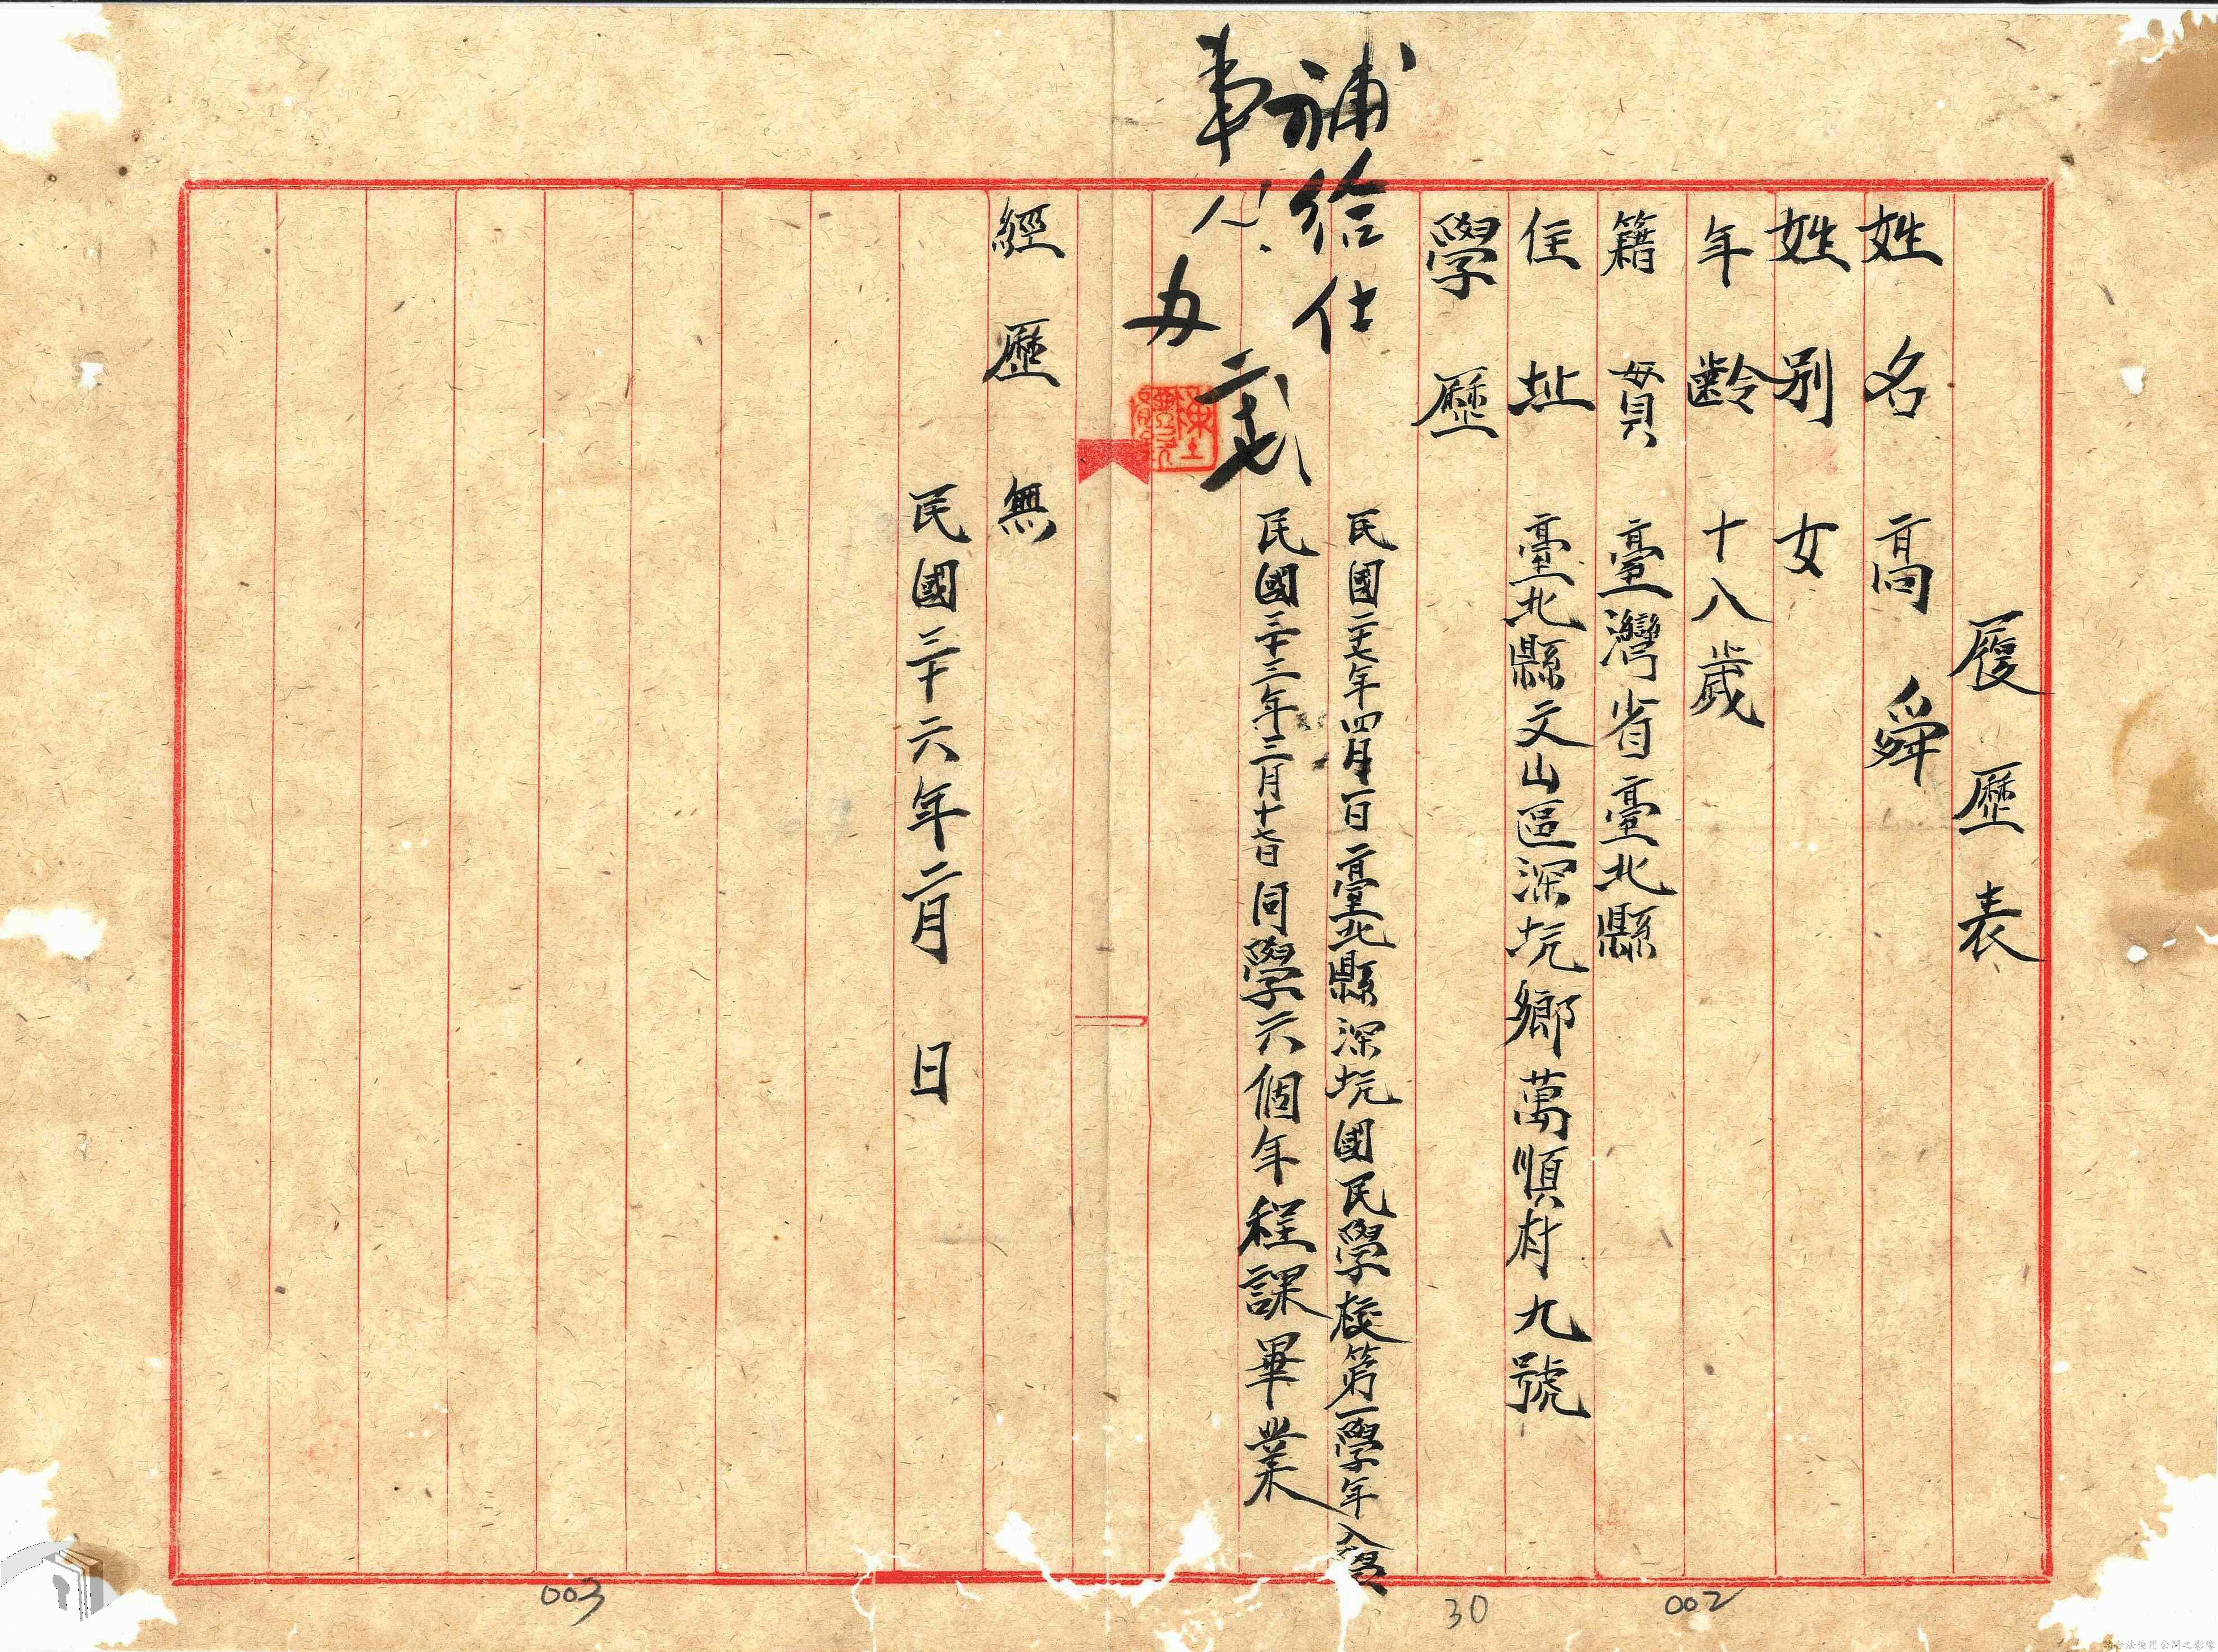 履歷表
姓名 高舜
姓別 女
年齡 十八歲
籍貫 臺灣省臺北縣
住址 臺北縣文山區深坑鄉萬順村九號
學歷
民國二十七年四月一日臺北縣深坑國民學校第一學年入學
民國三十三年三月十七日同學六個年程課畢業
經歷 無
民國三十六年二月 日
補給仕
事
办
003
30
002
合法使用公開之影像